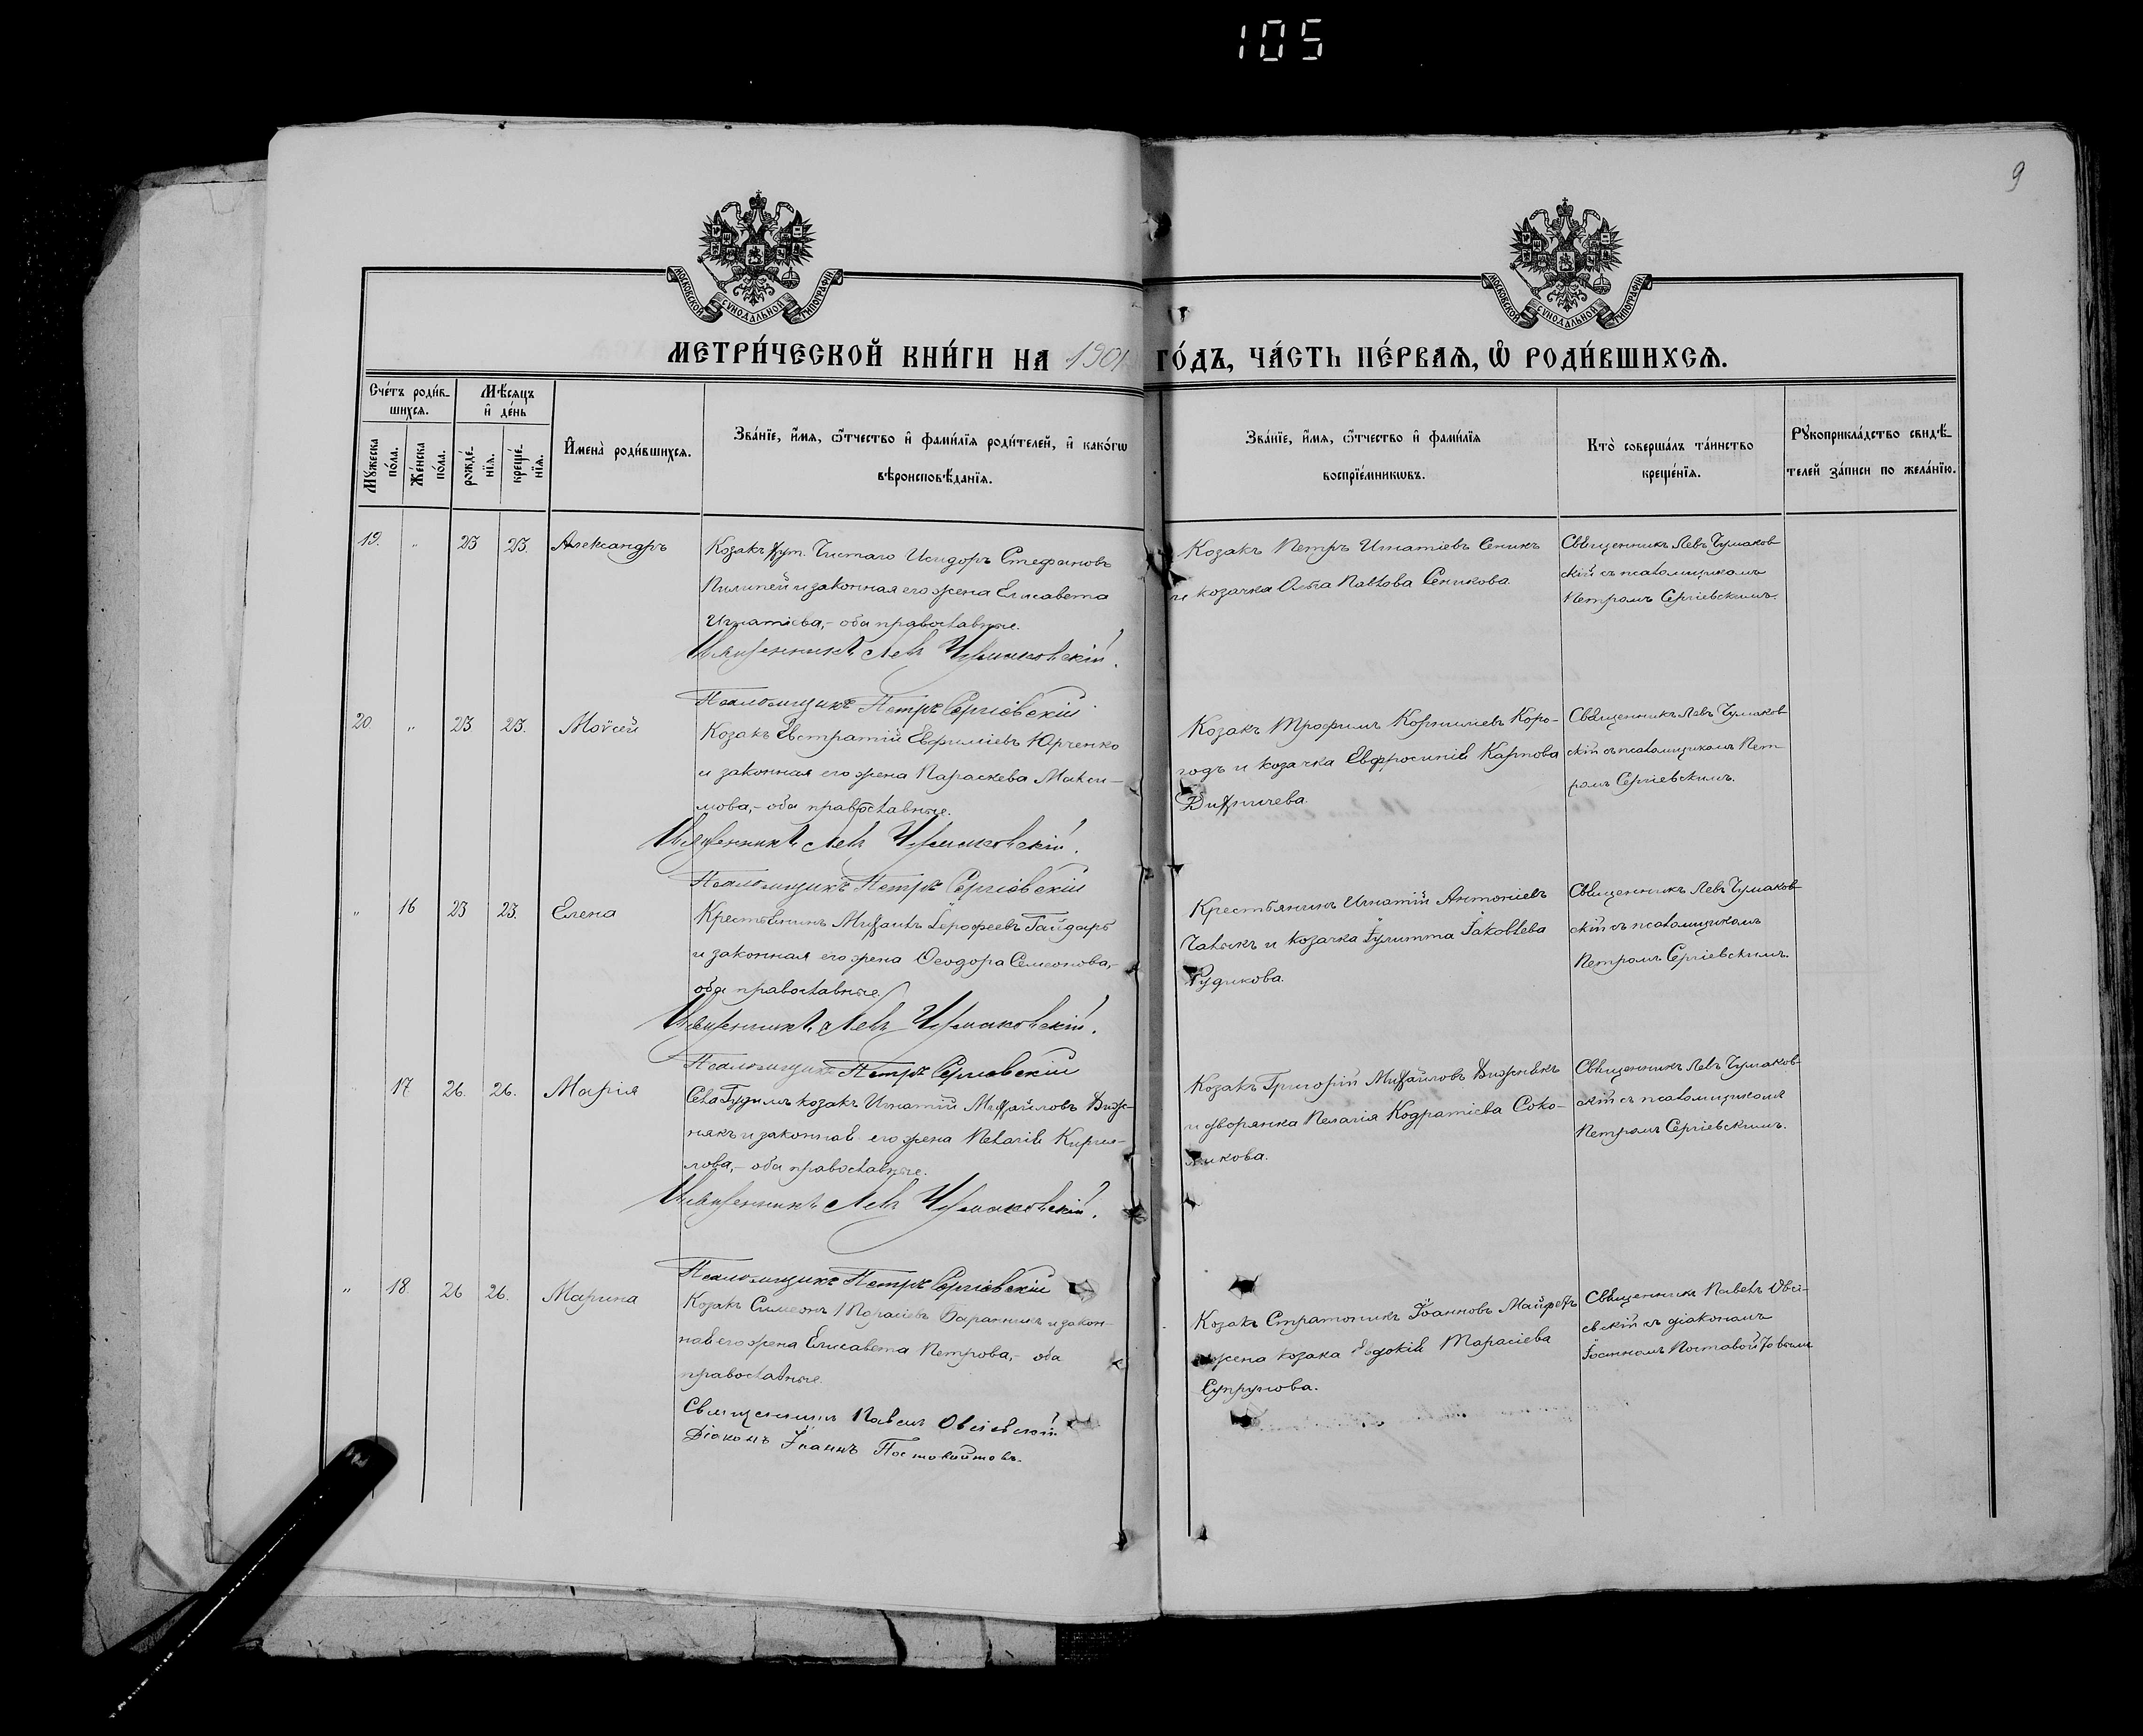 105
9
МОСКОВСКОЙ СѴНОДАЛЬНОЙ ТИПОГРАФІИ
МОСКОВСКОЙ СѴНОДАЛЬНОЙ ТИПОГРАФІИ
МЕТРИ́ЧЕСКОЙ КНИ́ГИ НА 1901 ГО́ДЪ, ЧА́СТЬ ПЕ́РВАѦ, Ѡ РОДИ́ВШИХСѦ.
Сче́тъ роди́в-
шихся.
Мѣ́сяцъ
и҆ де́нь
Мꙋ́жеска
по́ла.
Же́нска
по́ла.
рожде́-
нїя.
креще́-
нїя.
И҆мена̀ роди́вшихся.
Зва́нїе, и҆́мя, ѻ҆́тчество и҆ фами́лїя роди́телей, и҆ како́гѡ
вѣроисповѣ́данїя.
Зва́нїе, и҆́мя, ѻ҆́тчество и҆ фами́лїя
воспрїе́мникѡвъ.
Кто̀ соверша́лъ та́инство
креще́нїя.
Рꙋкоприкла́дство свидѣ́-
телей за́писи по жела́нїю.
19. " 23 23. Александръ
Козакъ хут. Чистаго Исидоръ Стефановъ
Пилипей и законная его жена Елисавета
Игнатіева,- оба православные.
Священникъ Левъ Чумаковскій.
Псаломщикъ Петръ Сергіевскій
Козакъ Петръ Игнатіевъ Сеникъ
и козачка Ольга Павлова Сеникова
Священникъ Левъ Чумаков-
скій съ псаломщикомъ
Петромъ Сергіевскимъ.
20. " 23. 23. Моѵсей
Козакъ Евстратій Евфиміевъ Юрченко
и законная его жена Параскева Макси-
мова,- оба православные.
Священникъ Левъ Чумаковскій.
Псаломщикъ Петръ Сергіевскій
Козакъ Трофимъ Корниліевъ Коро-
годъ и козачка Евфросинія Карпова
Священникъ Левъ Чумаков-
скій съ псаломщикомъ Пет-
ромъ Сергіевскимъ.
" 16 23 23. Елена
Крестьянинъ Михаилъ Іерофеевъ Гайдаръ
и законная его жена Ѳеодора Семеонова,-
оба православные.
Священникъ Левъ Чумаковскій.
Псаломщикъ Петръ Сергіевскій
Крестьянинъ Игнатій Антоніевъ
Чалыкъ и козачка Іулитта Іаковлева
Рудикова.
Священникъ Левъ Чумаков-
скій съ псаломщикомъ
Петромъ Сергіевскимъ.
17 26. 26. Марія
Села Гудимъ козакъ Игнатій Михайловъ Виж-
някъ и законная его жена Пелагія Кирил-
лова,- оба православные.
Священникъ Левъ Чумаковскій.
Псаломщикъ Петръ Сергіевскій
Козакъ Григорій Михайловъ Вижнякъ
и дворянка Пелагія Кодратіева Соко-
ликова.
Священникъ Левъ Чумаков-
скій съ псаломщикомъ
Петромъ Сергіевскимъ.
" 18. 26 26. Марина
Козакъ Симеонъ Тарасіевъ Баранникъ и закон-
ная его жена Елисавета Петрова,- оба
православные.
Священникъ Павелъ Овсіевскій
Діаконъ Іоаннъ
Козакъ Стратоникъ Іоанновъ
и жена козака Евдокія Тарасіева
Супрунова.
Священникъ Павелъ Овсі-
евскій съ діакономъ
Іоанномъ